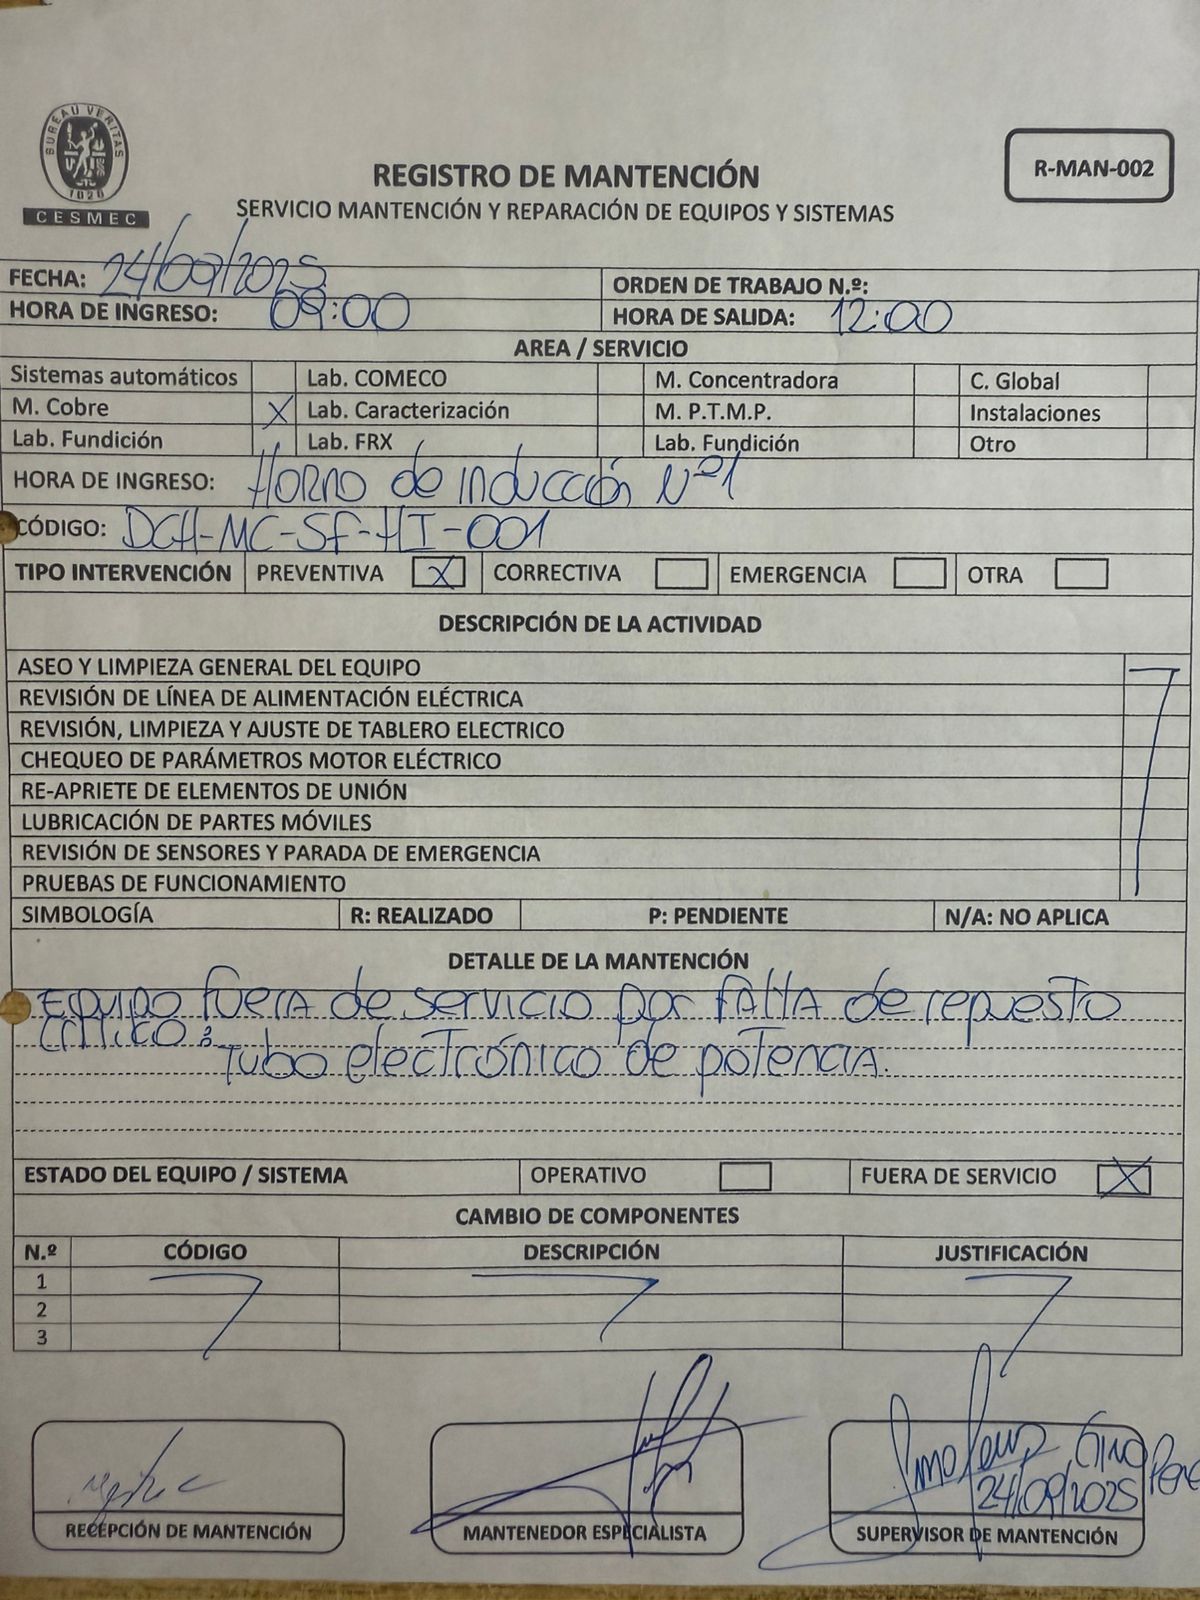 BUREAU VERITAS
1828
CESMEC
REGISTRO DE MANTENCIÓN
SERVICIO MANTENCIÓN Y REPARACIÓN DE EQUIPOS Y SISTEMAS
R-MAN-002
FECHA: 24/09/2025
ORDEN DE TRABAJO N.º:
HORA DE INGRESO: 09:00
HORA DE SALIDA: 12:00
AREA / SERVICIO
Sistemas automáticos Lab. COMECO M. Concentradora C. Global
M. Cobre X Lab. Caracterización M. P.T.M.P. Instalaciones
Lab. Fundición Lab. FRX Lab. Fundición Otro
HORA DE INGRESO: Horno de inducción Nº1
CÓDIGO: DCH-MC-SF-HI-001
TIPO INTERVENCIÓN PREVENTIVA X CORRECTIVA EMERGENCIA OTRA
DESCRIPCIÓN DE LA ACTIVIDAD
ASEO Y LIMPIEZA GENERAL DEL EQUIPO
REVISIÓN DE LÍNEA DE ALIMENTACIÓN ELÉCTRICA
REVISIÓN, LIMPIEZA Y AJUSTE DE TABLERO ELECTRICO
CHEQUEO DE PARÁMETROS MOTOR ELÉCTRICO
RE-APRIETE DE ELEMENTOS DE UNIÓN
LUBRICACIÓN DE PARTES MÓVILES
REVISIÓN DE SENSORES Y PARADA DE EMERGENCIA
PRUEBAS DE FUNCIONAMIENTO
SIMBOLOGÍA R: REALIZADO P: PENDIENTE N/A: NO APLICA
DETALLE DE LA MANTENCIÓN
Equipo fuera de servicio por falta de repuesto
crítico:
Tubo electrónico de potencia.
ESTADO DEL EQUIPO / SISTEMA OPERATIVO FUERA DE SERVICIO X
CAMBIO DE COMPONENTES
N.º CÓDIGO DESCRIPCIÓN JUSTIFICACIÓN
1
2
3
Gino
24/09/2025
RECEPCIÓN DE MANTENCIÓN
MANTENEDOR ESPECIALISTA
SUPERVISOR DE MANTENCIÓN